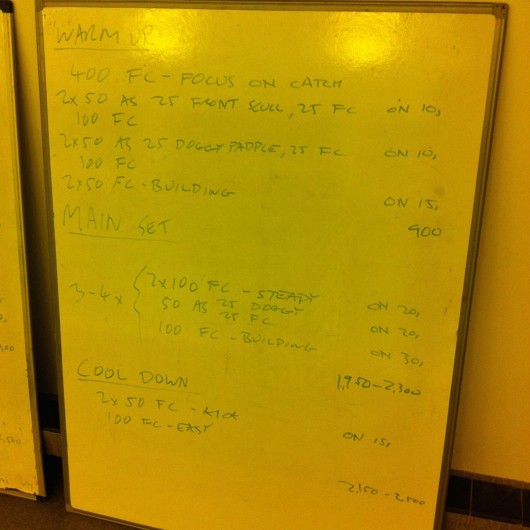 WARM UP
400 FC - FOCUS ON CATCH
2x50 AS 25 FRONT SCULL, 25 FC ON 10,
100 FC
2x50 AS 25 DOGGY PADDLE, 25 FC ON 10,
100 FC
2x50 FC - BUILDING ON 15,
900
MAIN SET
3-4x { 2x100 FC - STEADY ON 20,
50 AS 25 DOGGY
25 FC ON 20,
100 FC - BUILDING ON 30,
1,950-2,300
COOL DOWN
2x50 FC - KICK ON 15,
100 FC - EASY
2,150-2,500